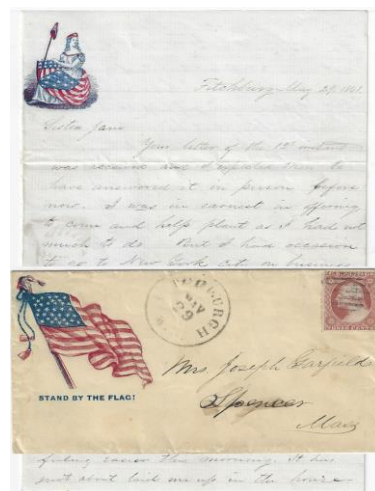 Fitchburg May 29, 1861.
Sister Jane
Your letter of the 12 instant
was received and I expected then to
have answered it in person before
now. I was in earnest in offering
to come and help plant as I had not
much to do. But I had occasion
to go to New York city on business
STAND BY THE FLAG!
MAY
29
THREE CENTS
Mrs. Joseph Garfield
Spencer
Mass
this morning. It has
me up in the house